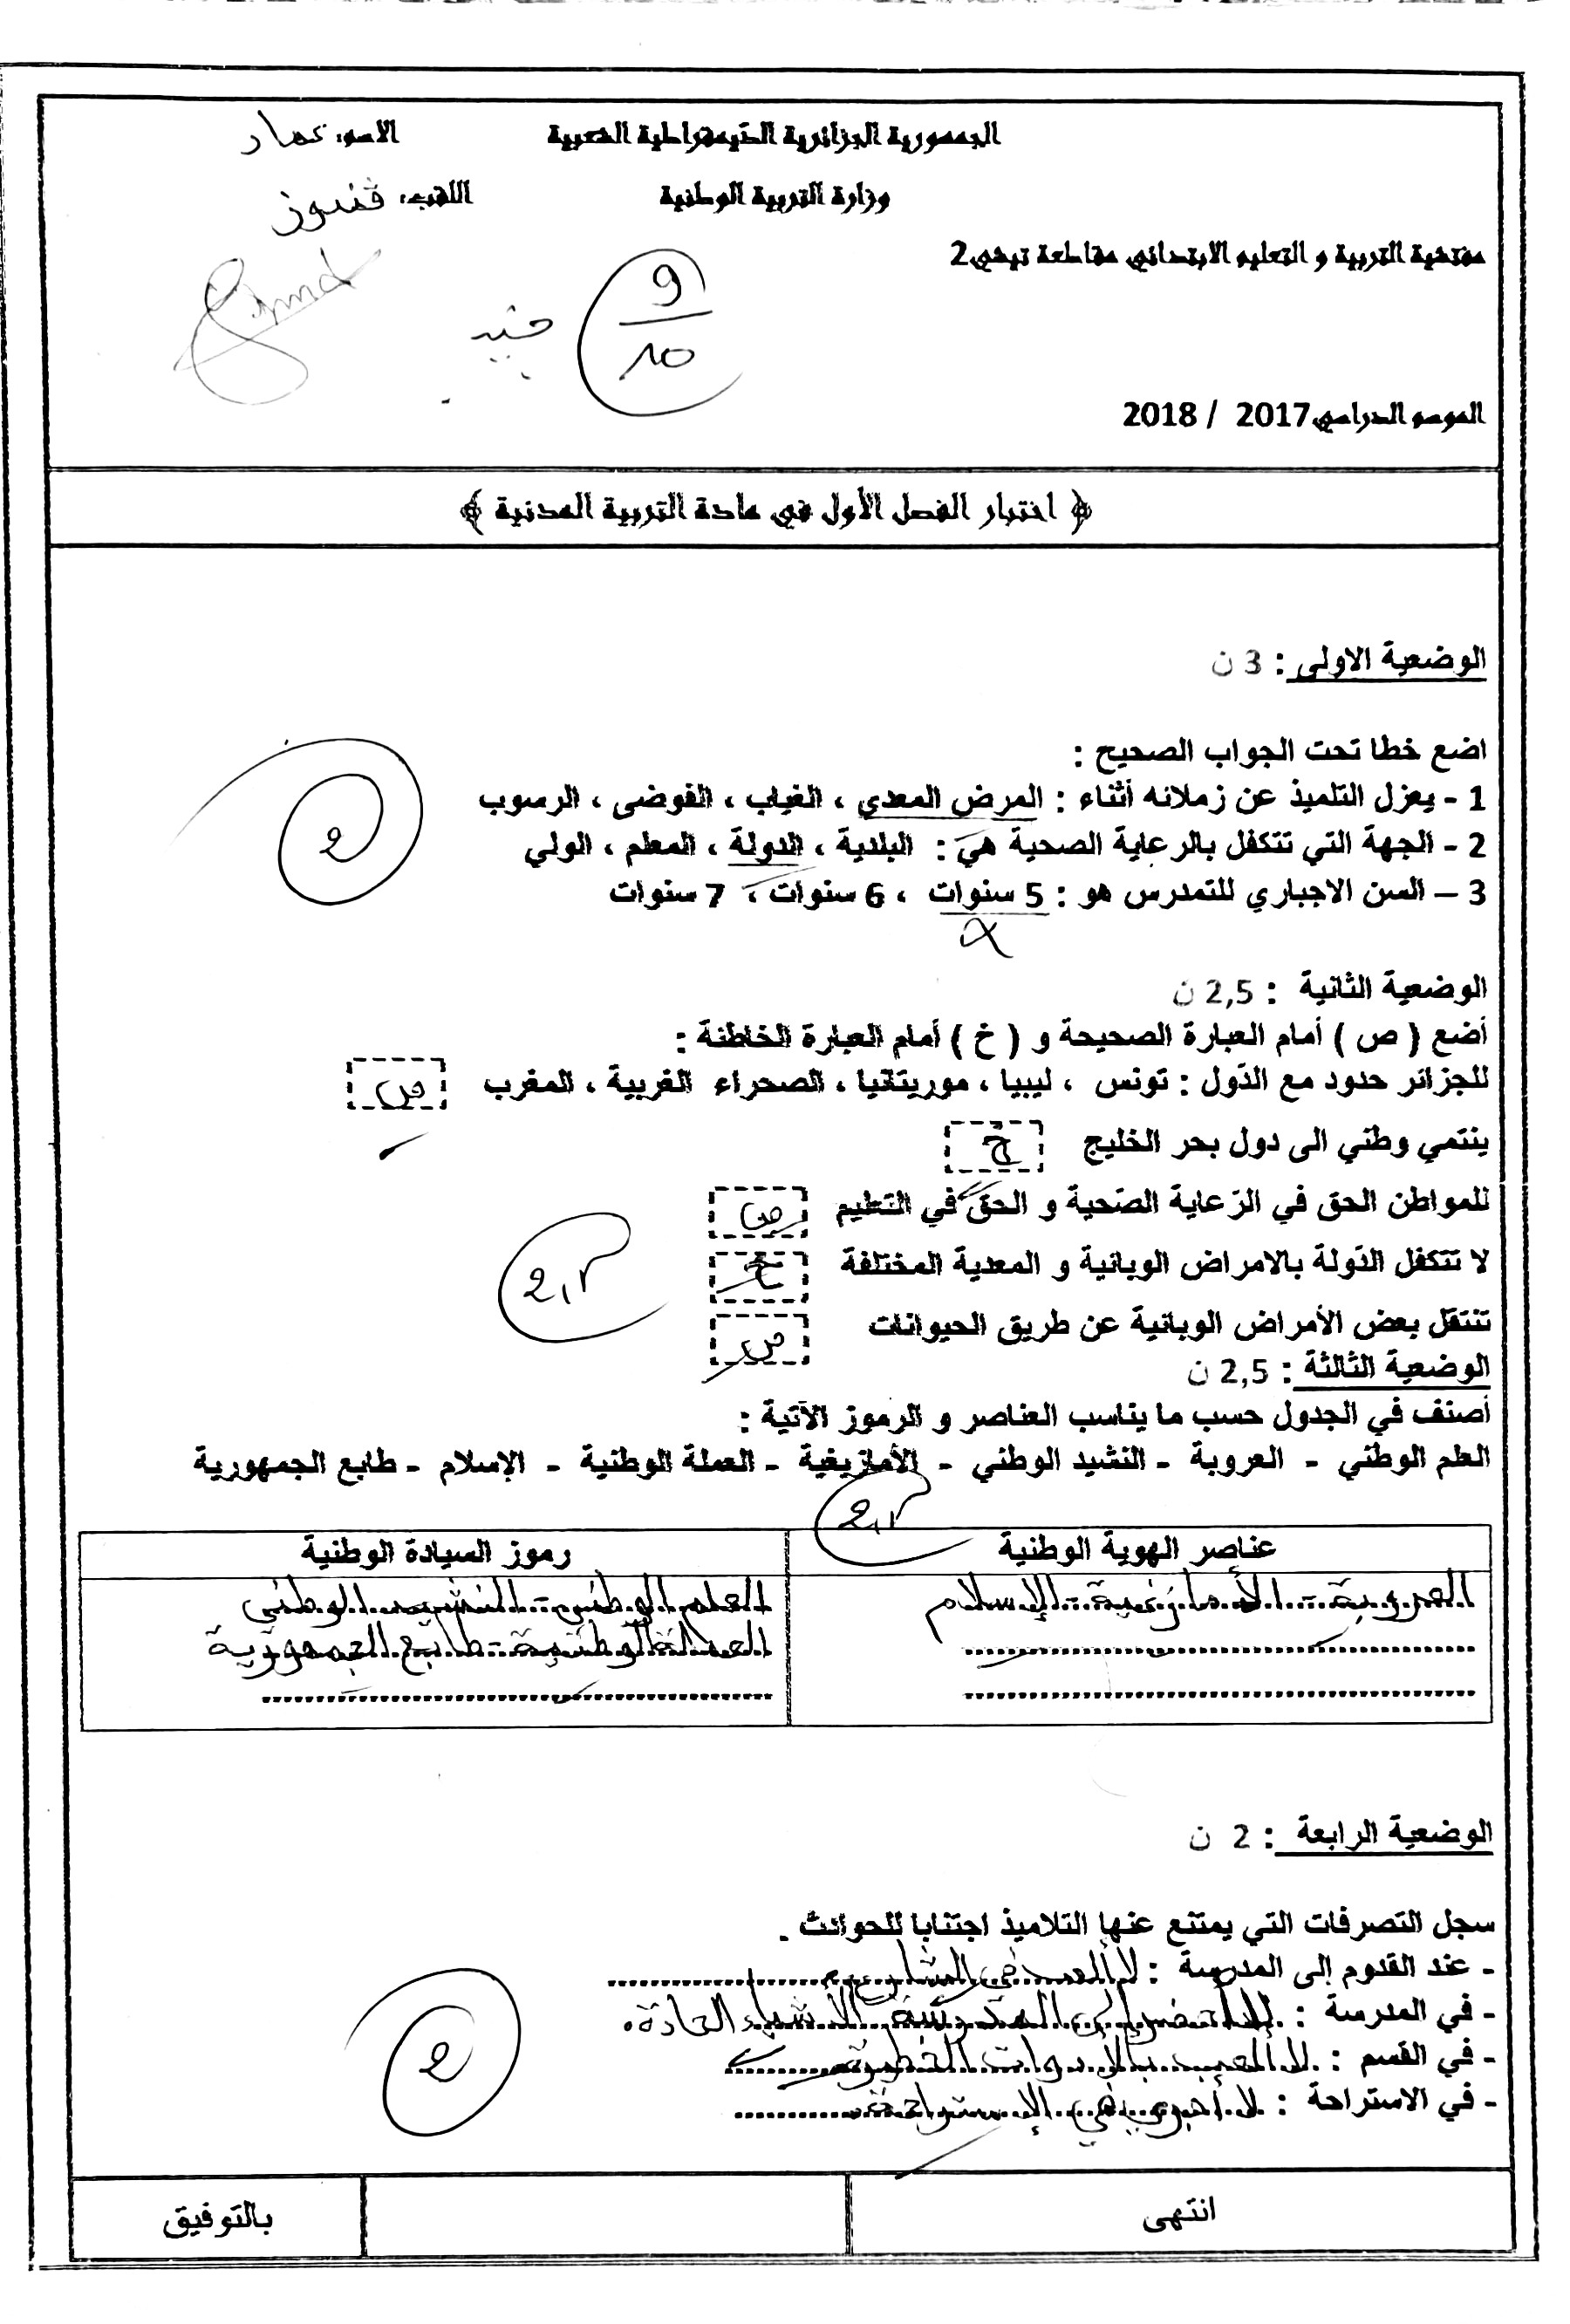 الجمهورية الجزائرية الديمقراطية الشعبية
الاسم: عماد
وزارة التربية الوطنية
اللقب: قندوز
مفتشية التربية و التعليم الابتدائي مقاطعة تيشي2
9
10
جيد
الموسم الدراسي2017 / 2018
﴿ اختبار الفصل الأول في مادة التربية المدنية ﴾
الوضعية الاولى : 3 ن
اضع خطا تحت الجواب الصحيح :
1 - يعزل التلميذ عن زملائه أثناء : المرض المعدي ، الغياب ، الفوضى ، الرسوب
2 - الجهة التي تتكفل بالرعاية الصحية هي : البلدية ، الدولة ، المعلم ، الولي
2
3 – السن الاجباري للتمدرس هو : 5 سنوات ، 6 سنوات ، 7 سنوات
الوضعية الثانية : 2,5 ن
أضع ( ص ) أمام العبارة الصحيحة و ( خ ) أمام العبارة الخاطئة :
للجزائر حدود مع الدّول : تونس ، ليبيا ، موريتانيا ، الصحراء الغربية ، المغرب ص
ينتمي وطني الى دول بحر الخليج خ
للمواطن الحق في الرّعاية الصّحية و الحق في التعليم ص
لا تتكفل الدّولة بالامراض الوبائية و المعدية المختلفة خ
2,5
تنتقل بعض الأمراض الوبائية عن طريق الحيوانات ص
الوضعية الثالثة : 2,5 ن
أصنف في الجدول حسب ما يناسب العناصر و الرموز الآتية :
العلم الوطني - العروبة - النشيد الوطني - الأمازيغية - العملة الوطنية - الإسلام - طابع الجمهورية
2,5
عناصر الهوية الوطنية
رموز السيادة الوطنية
العروبة - الأمازيغية - الإسلام
العلم الوطني - النشيد الوطني
العملة الوطنية - طابع الجمهورية
الوضعية الرابعة : 2 ن
سجل التصرفات التي يمتنع عنها التلاميذ اجتنابا للحوادث .
- عند القدوم إلى المدرسة : لا ألعب في الشارع
- في المدرسة : لا أحضر إلى المدرسة الأشياء الحادة.
- في القسم : لا ألعب بالأدوات الخطيرة
2
- في الاستراحة : لا أجري في الإستراحة
انتهى
بالتوفيق